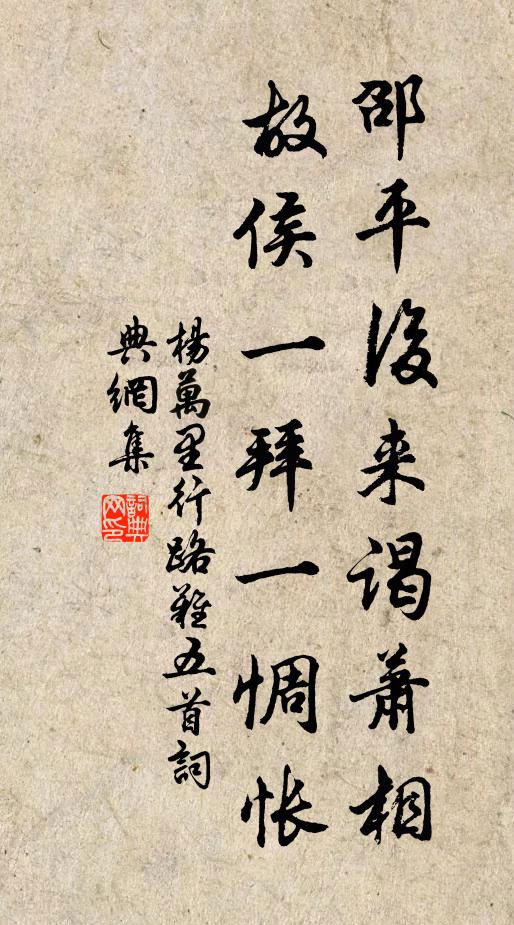 邵平後来谒蕭相
故侯一拜一惆怅
楊萬里行路難五首詞
典網集
詞典
网印